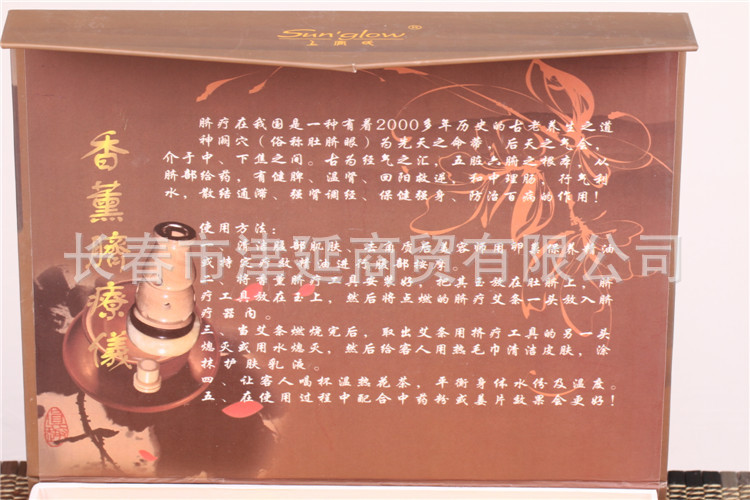 Sun'glow®
香薰脐疗仪
脐疗在我国是一种有着2000多年历史的古老养生之道
神阙穴（俗称肚脐眼）为先天之命蒂，后天之气会，
介于中、下焦之间。古为经气之汇，五脏六腑之根本，从
脐部给药，有健脾、温肾、回阳救逆、和中理肠、行气利
水，散结通滞、强肾调经、保健强身、防治百病的作用！
使用方法：
一、清洁腹部肌肤
二、将
疗工具放在玉上，然后将点燃的脐疗艾条一头放入脐
疗器内。
三、当艾条燃烧完后，取出艾条用挤疗工具的另一头
熄灭或用水熄灭，然后给客人用热毛巾清洁皮肤，涂
抹护肤乳液。
四、让客人喝杯温热花茶，平衡身体水份及温度。
五、在使用过程中配合中药粉或姜片效果会更好！
长春市津延商贸有限公司